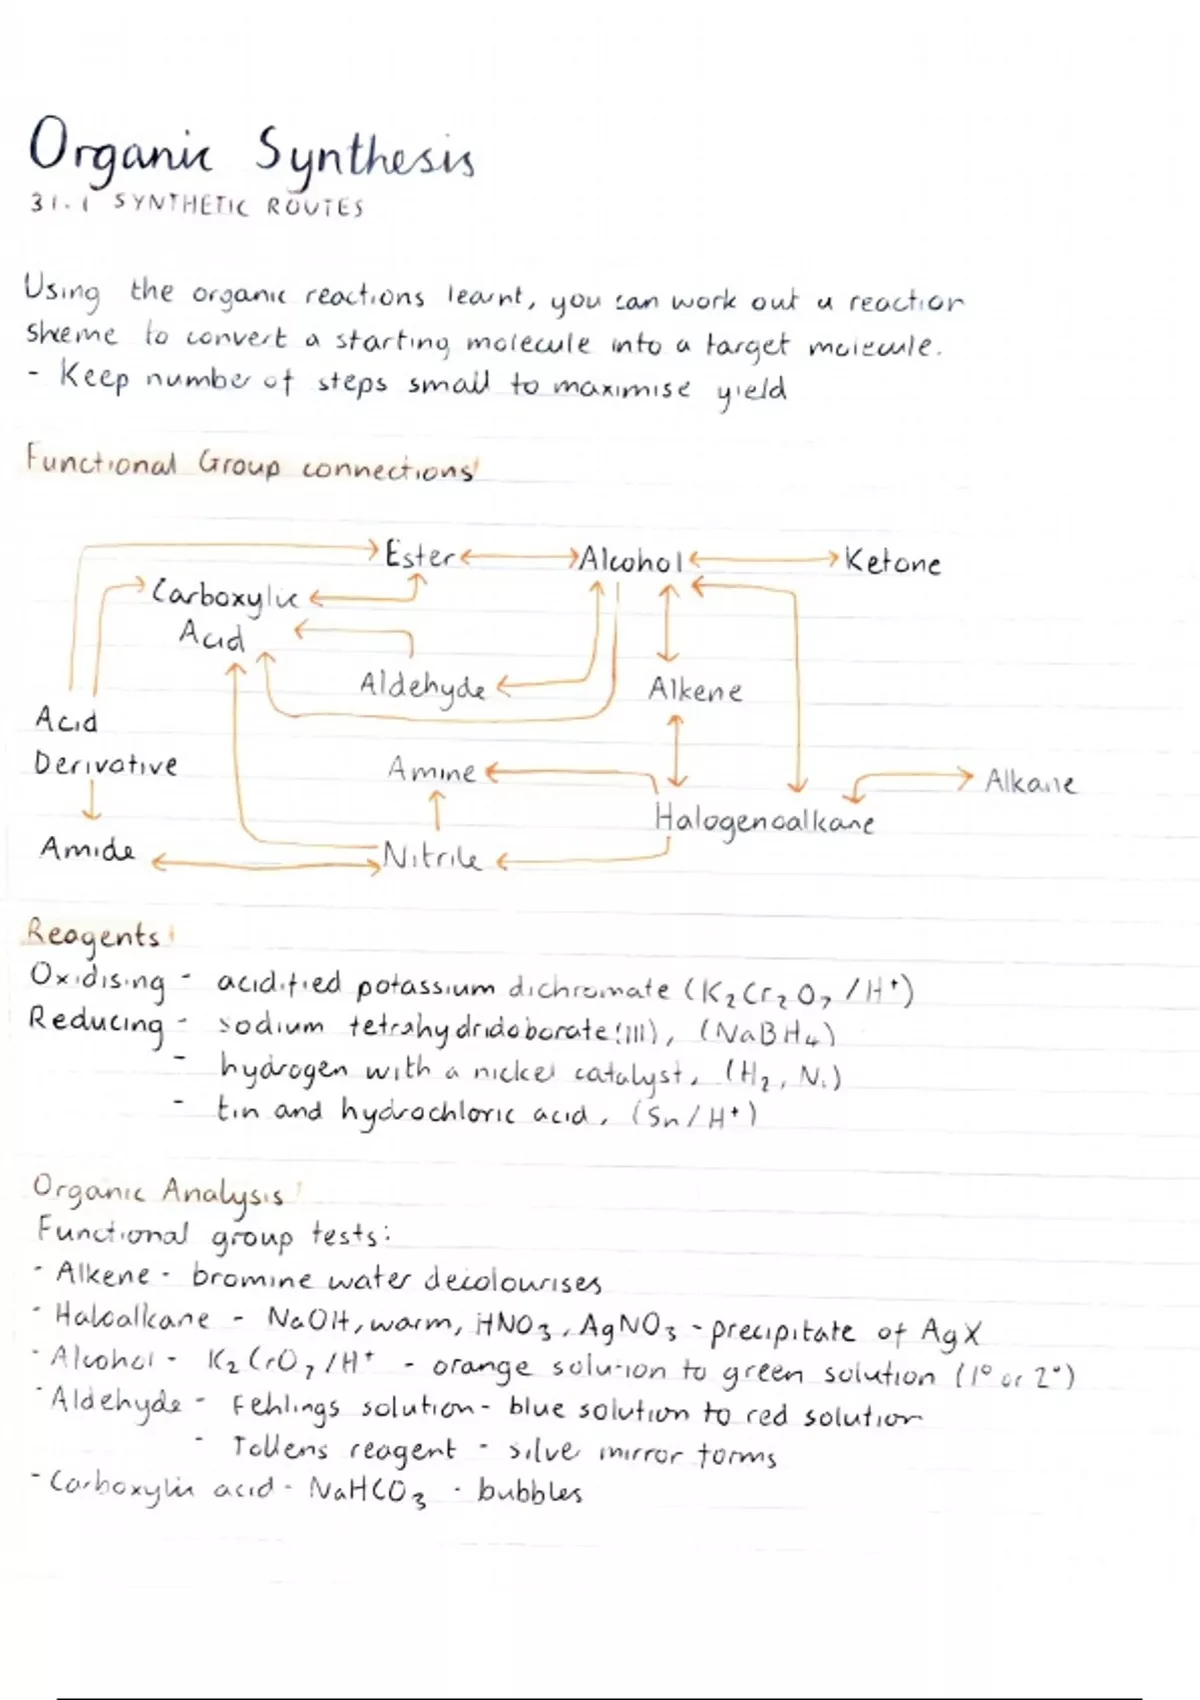 Organic Synthesis
31.1 SYNTHETIC ROUTES
Using the organic reactions learnt, you can work out a reaction
sheme to convert a starting molecule into a target molecule.
- Keep number of steps small to maximise yield
Functional Group connections
Ester Alcohol Ketone
Carboxylic
Acid
Aldehyde Alkene
Acid
Derivative
Amine Alkane
Halogenoalkane
Amide Nitrile
Reagents
Oxidising - acidified potassium dichromate (K₂Cr₂O₇ / H⁺)
Reducing - sodium tetrahydridoborate (III), (NaBH₄)
- hydrogen with a nickel catalyst, (H₂, Ni)
- tin and hydrochloric acid, (Sn / H⁺)
Organic Analysis
Functional group tests:
- Alkene - bromine water decolourises
- Haloalkane - NaOH, warm, HNO₃, AgNO₃ - precipitate of AgX
- Alcohol - K₂CrO₇ / H⁺ - orange solution to green solution (1° or 2°)
- Aldehyde - Fehlings solution - blue solution to red solution
- Tollens reagent - silve mirror forms
- Carboxylic acid - NaHCO₃ - bubbles